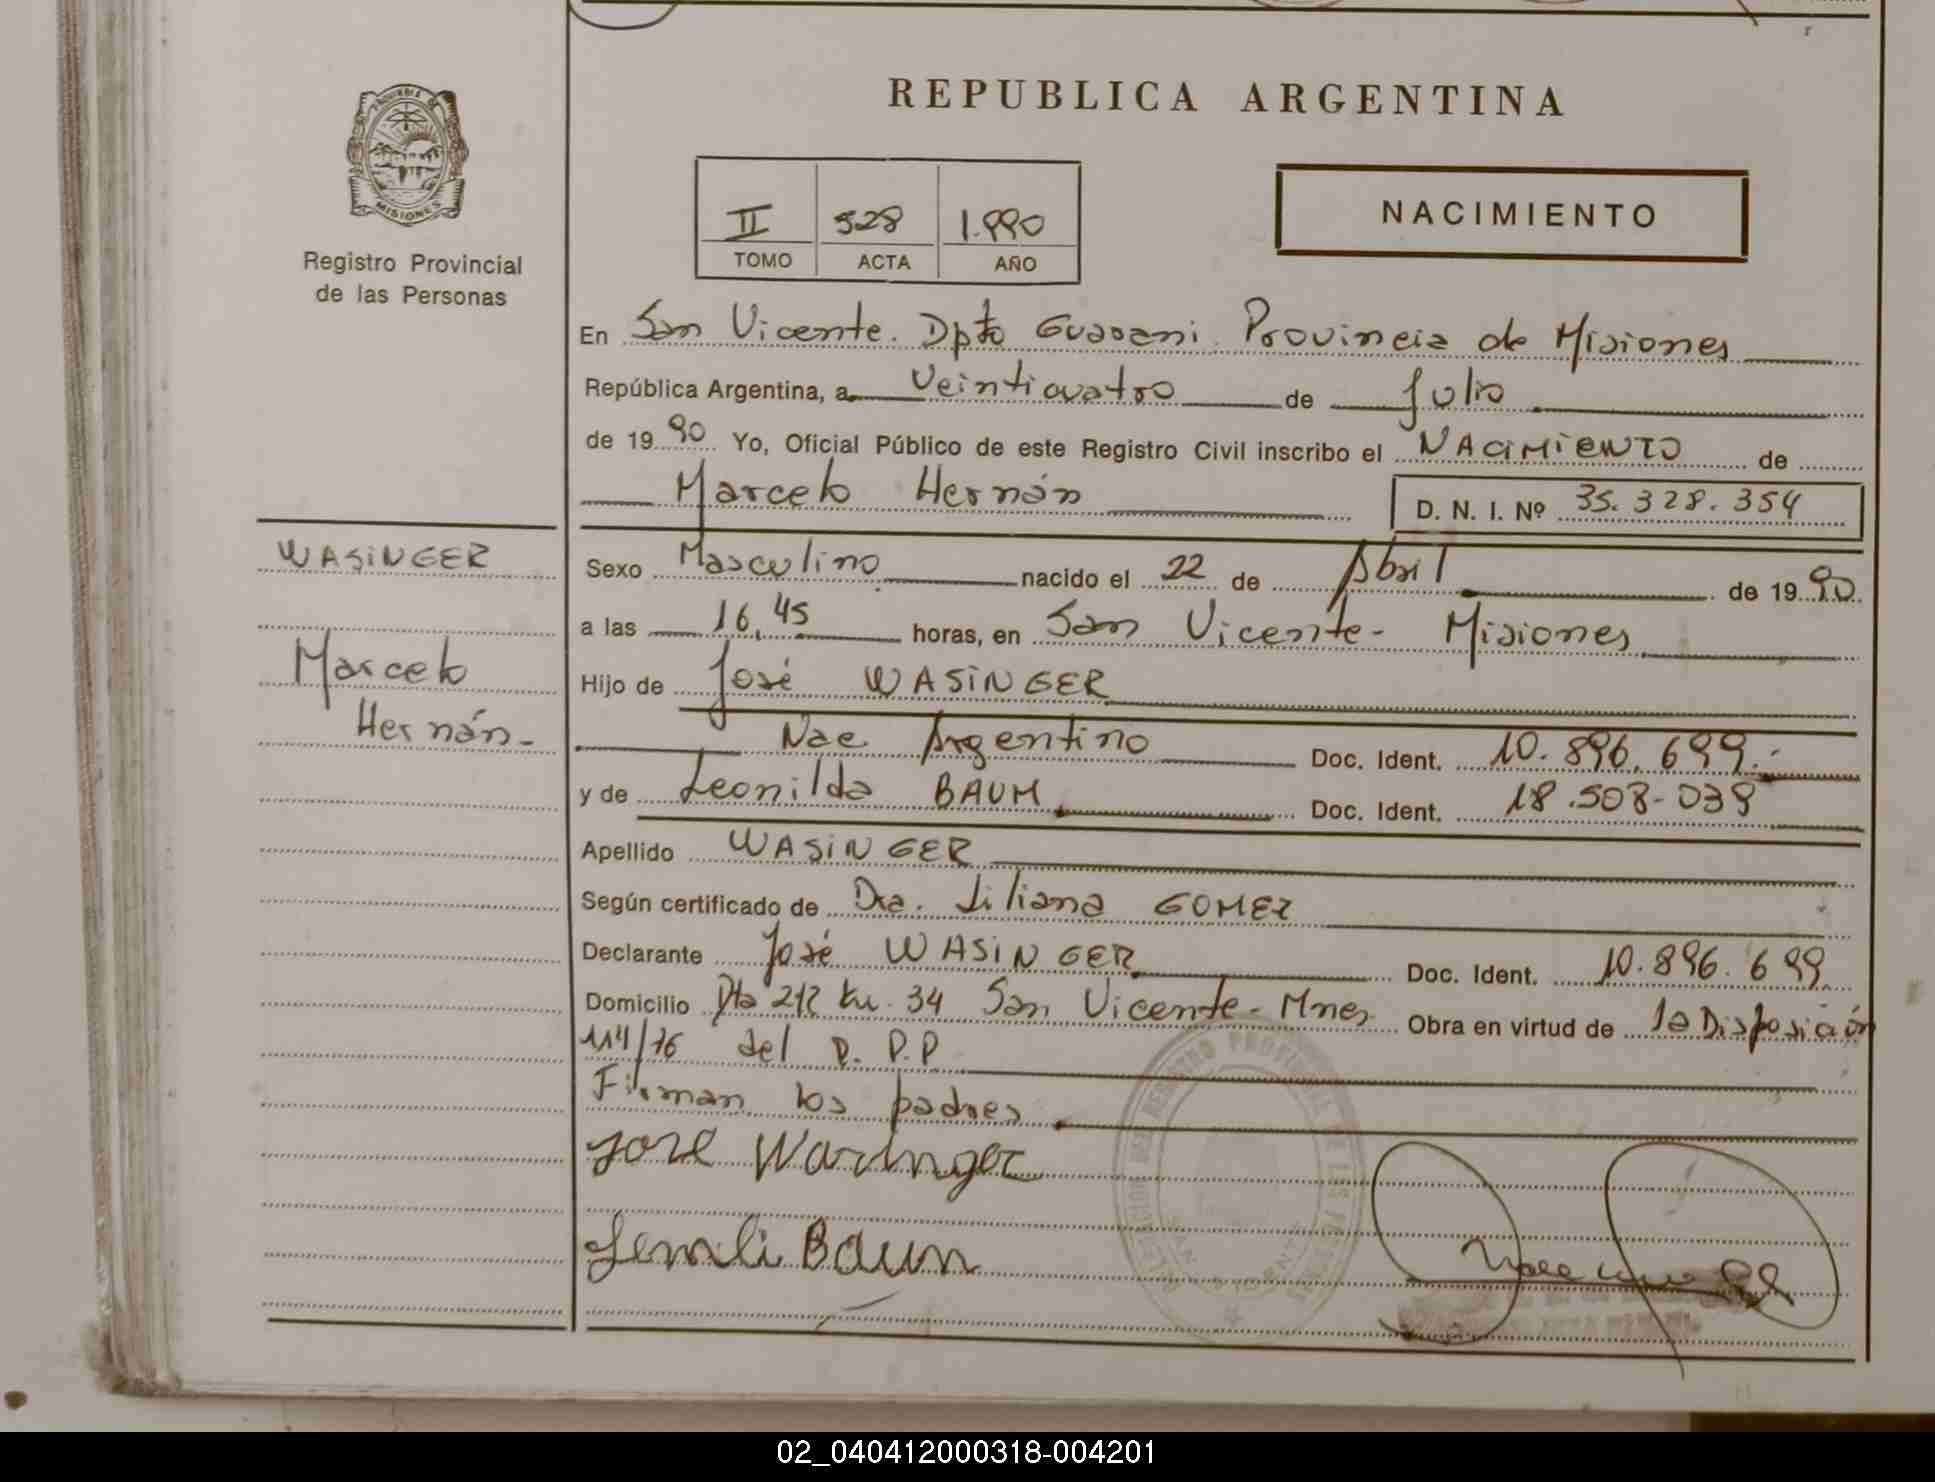 REPUBLICA ARGENTINA
PROVINCIA DE
MISIONES
Registro Provincial
de las Personas
II 528 1.990
TOMO ACTA AÑO
NACIMIENTO
En San Vicente. Dpto Guarani. Provincia de Misiones
República Argentina, a Veinticuatro de Julio
de 19 90 Yo, Oficial Público de este Registro Civil inscribo el NACIMIENTO de
Marcelo Hernán D. N. I. Nº 35.328.354
WASINGER
Marcelo
Hernán-
Sexo Masculino nacido el 22 de Abril de 19 90
a las 16,45 horas, en San Vicente- Misiones
Hijo de José WASINGER
Nac Argentino Doc. Ident. 10.896.699.-
y de Leonilda BAUM Doc. Ident. 18.508-038
Apellido WASINGER
Según certificado de Dra. Liliana GOMEZ
Declarante José WASINGER Doc. Ident. 10.896.699
Domicilio Rta 212 km. 34 San Vicente- Mnes Obra en virtud de la Disposición
114/76 del R. P.P
Firman los padres
Jose Wasinger
Baum
02_040412000318-004201